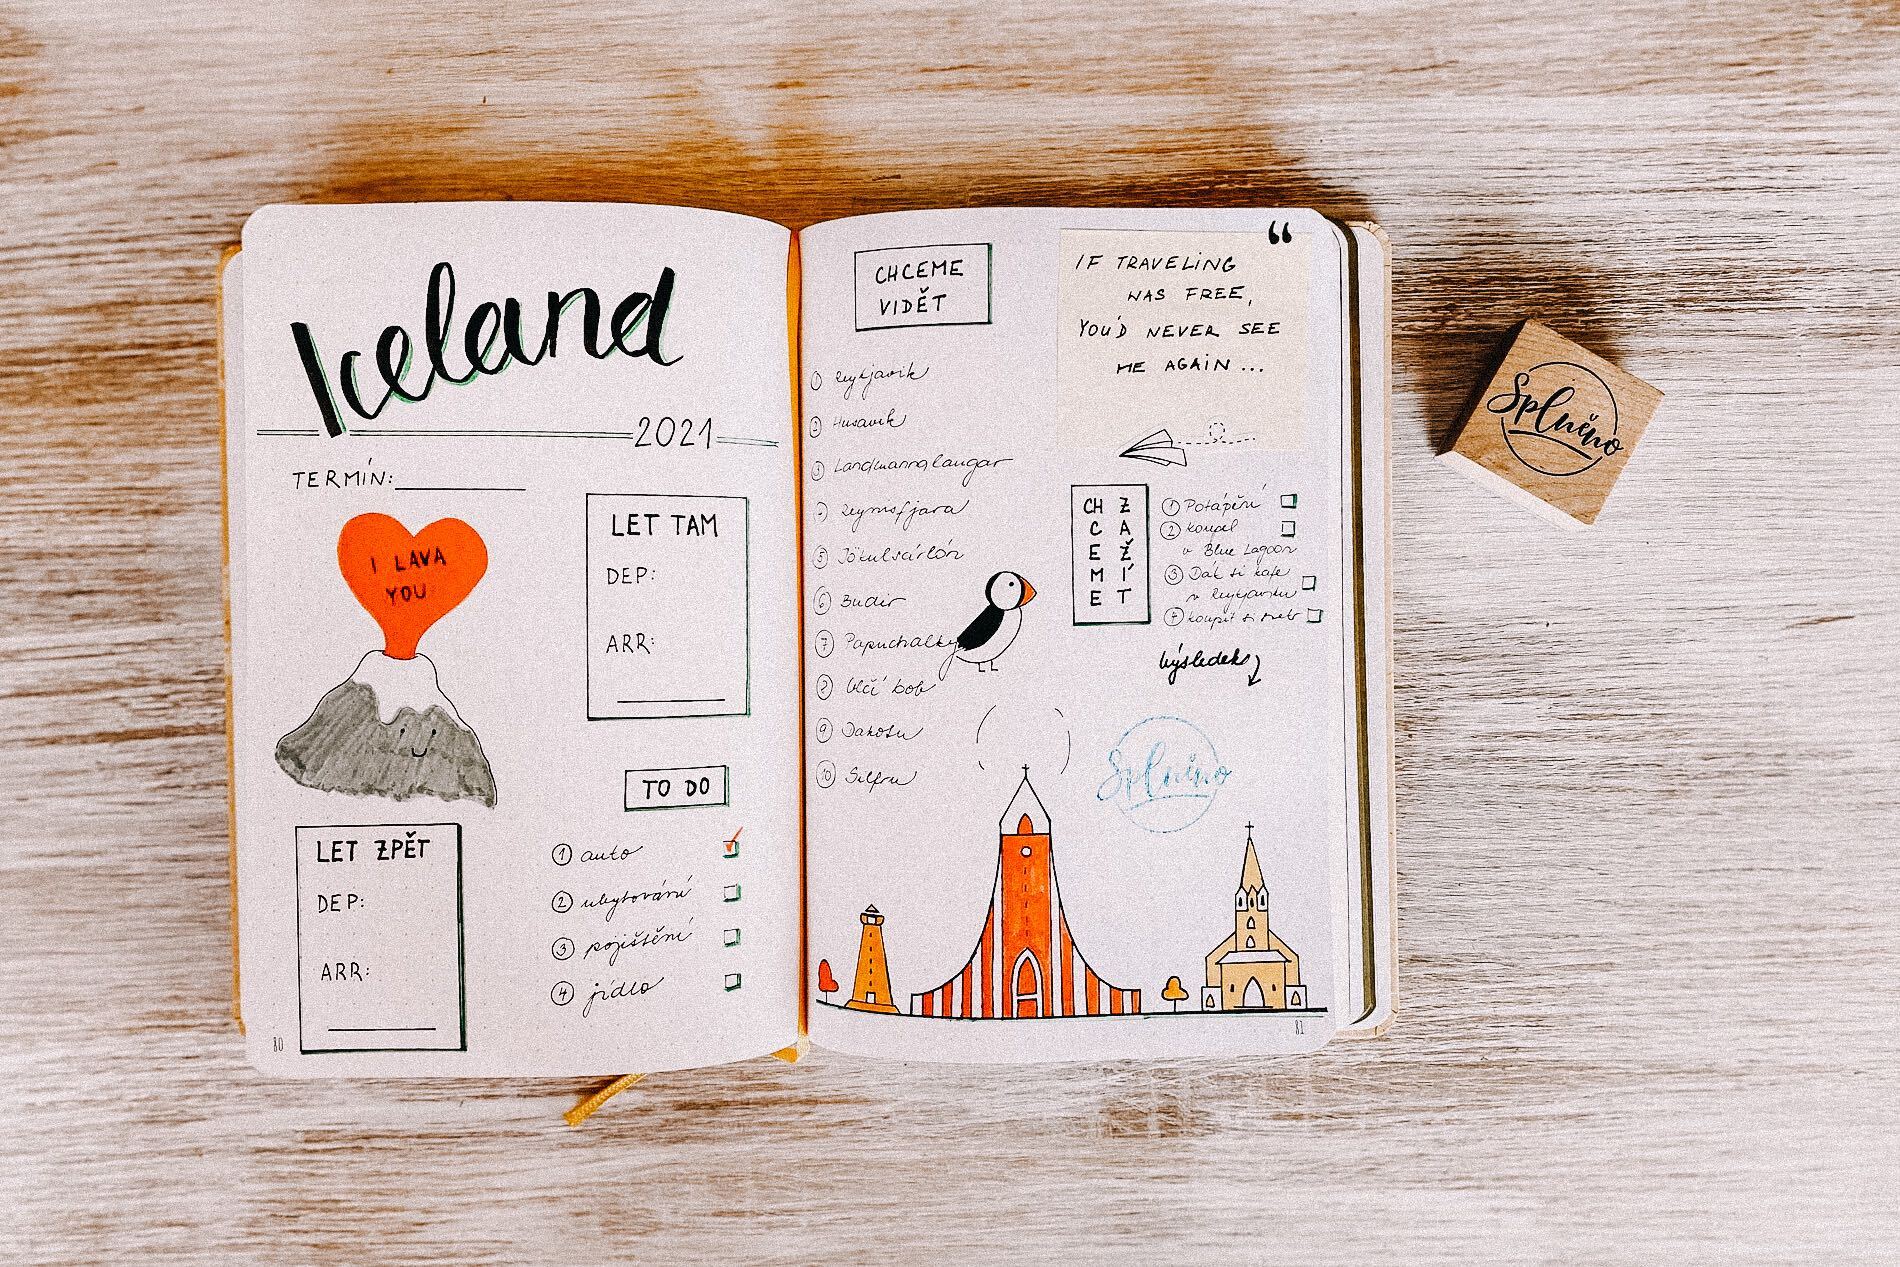 Iceland
2021
TERMÍN:
I LAVA
YOU
LET TAM
DEP:
ARR:
TO DO
① auto
② ubytování
③ pojištění
④ jídlo
LET ZPĚT
DEP:
ARR:
80
CHCEME
VIDĚT
① Reykjavik
② Husavik
③ Landmannalaugar
④ Reynisfjara
⑤ Jökulsárlón
⑥ Budir
⑦ Papuchalky
⑧ Vlčí bob
⑨
⑩ Silfru
“
IF TRAVELING
WAS FREE,
YOU'D NEVER SEE
ME AGAIN...
CH Z
C A
E Ž
M Í
E T
① Potápění
② koupel
v Blue Lagoon
③ Dát si kafe
v Reykjavíku
④ koupit si svetr
výsledek
Splněno
81
Splněno